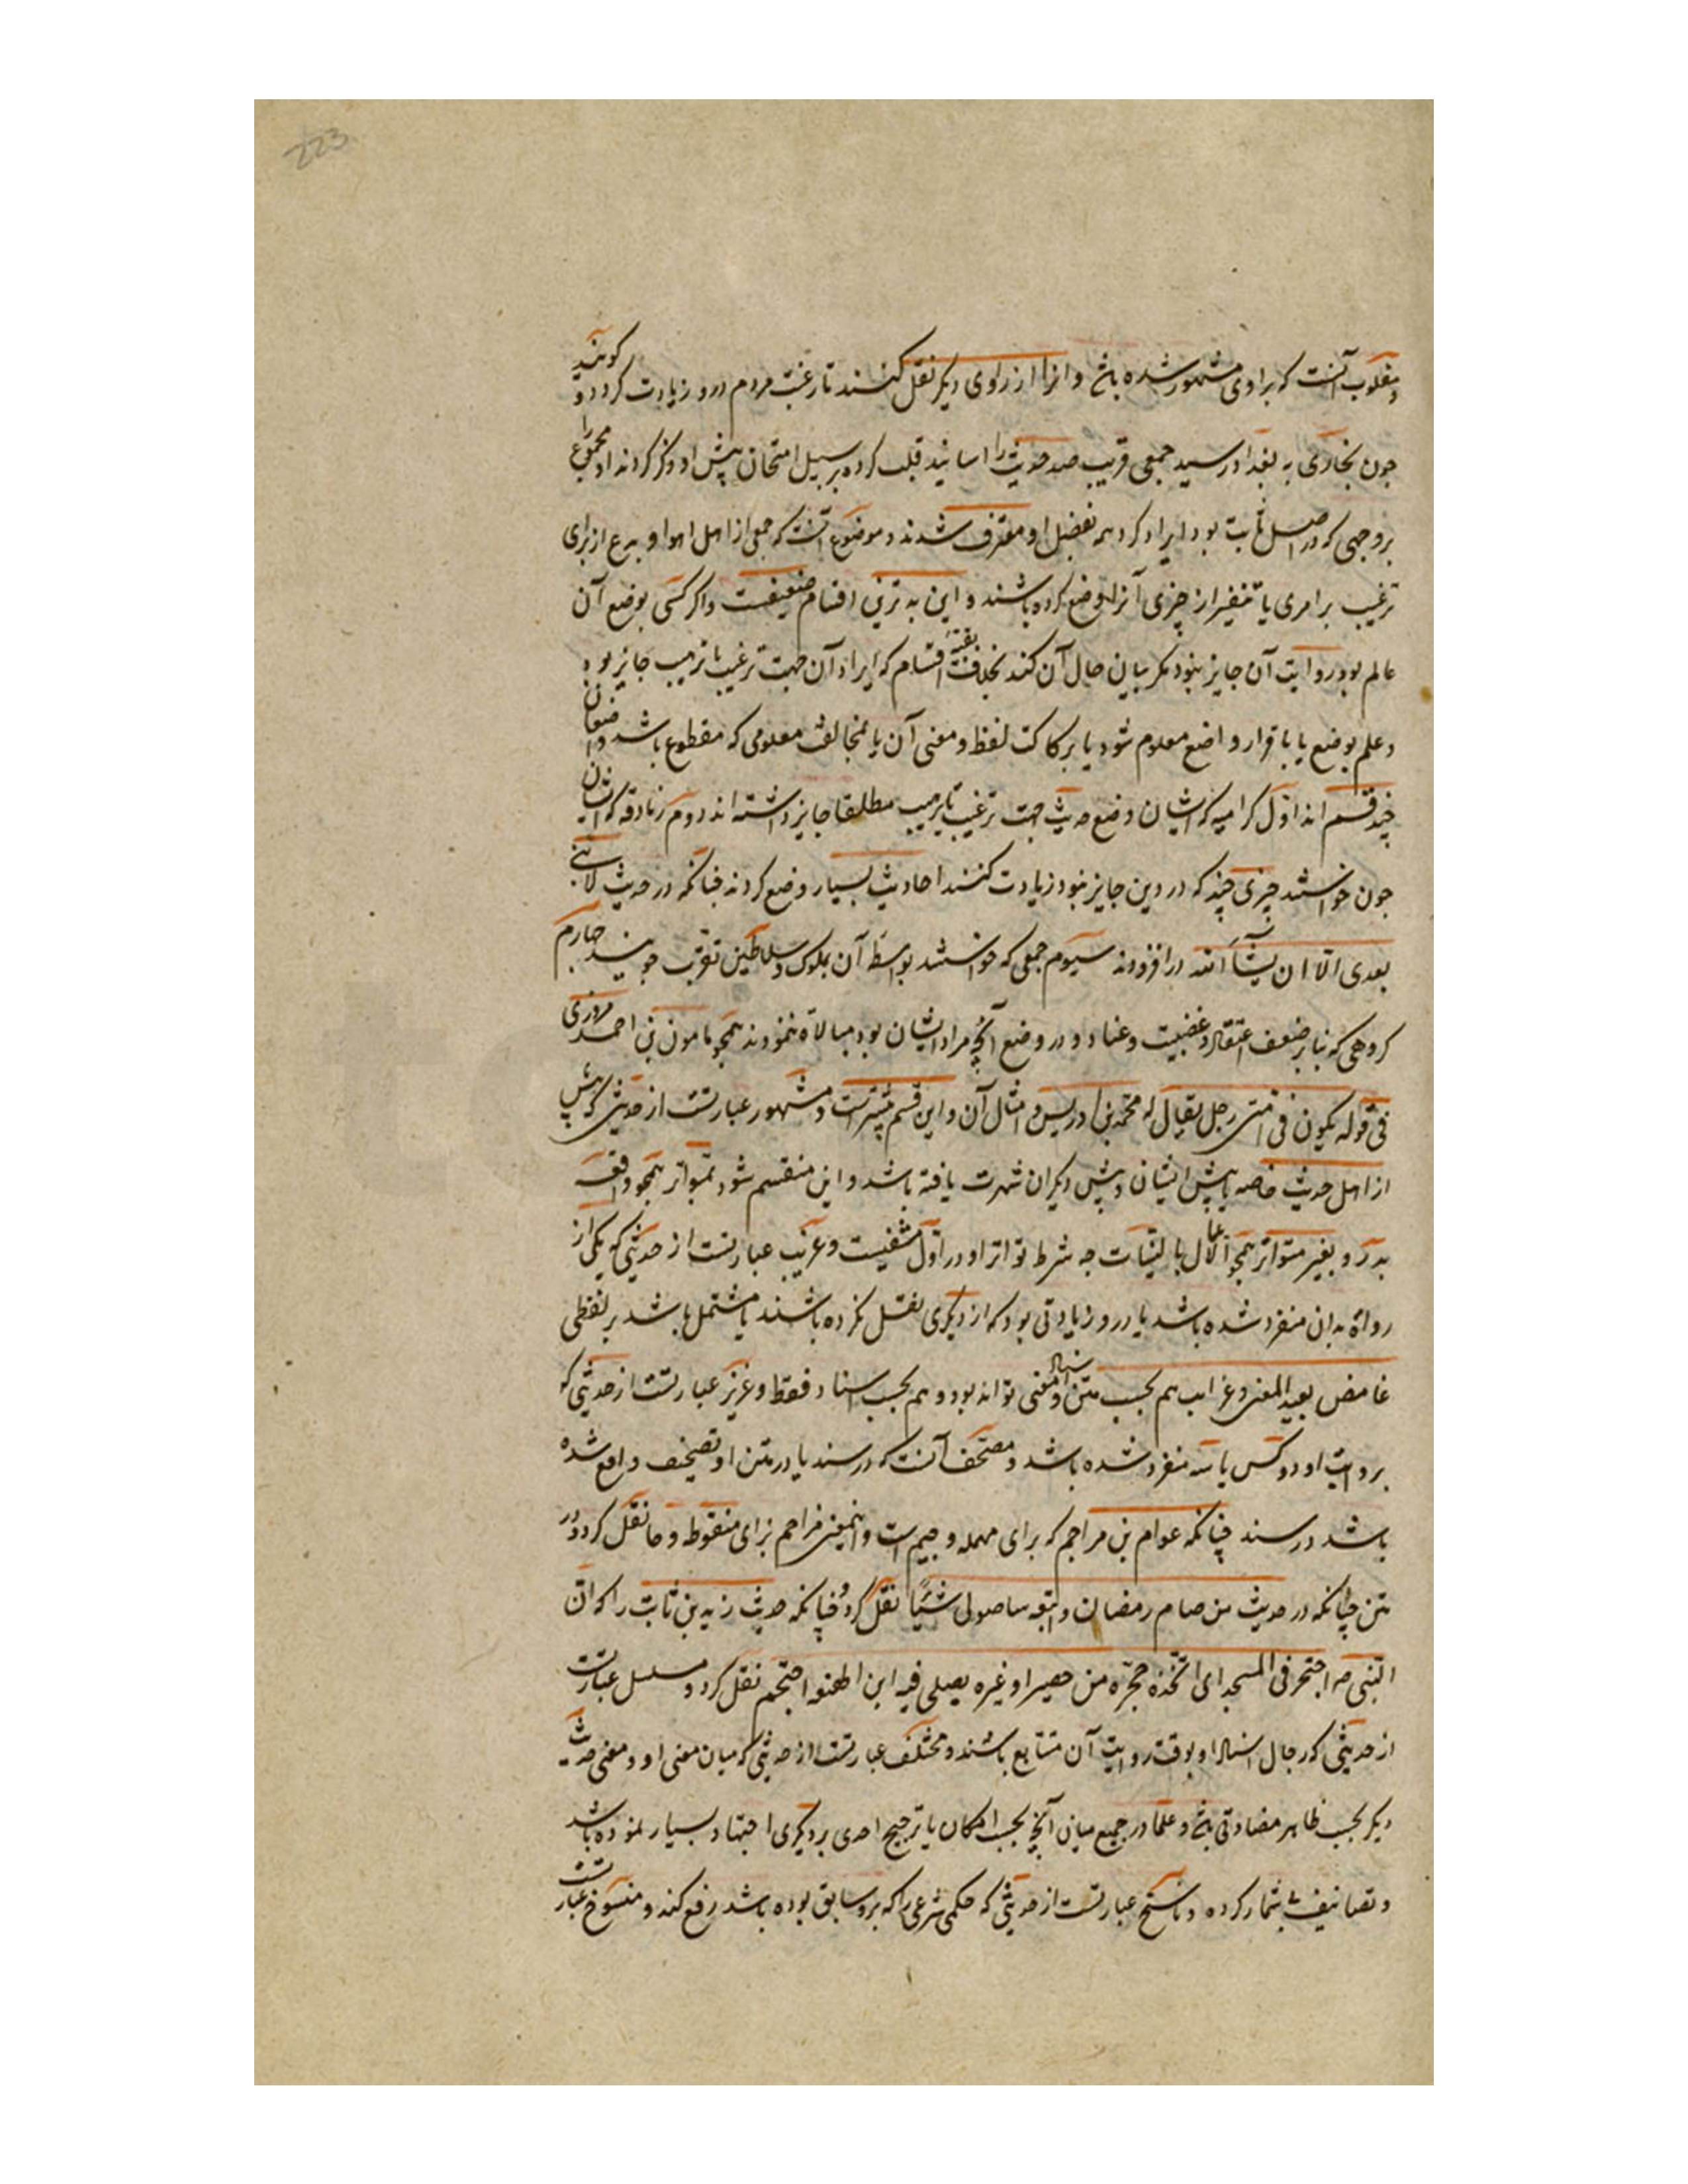 223
و مقلوب آنست که براوی مشهور شده باشد و انرا از راوی دیگر نقل کنند تا رغبت مردم درو زیادت کردد و کویند
جون بخاری به بغداد رسید جمعی قریب صد حدیث را اسانید قلب کرده بر سبیل امتحان پیش او ذکر کردند او مجموع را
بر وجهی که در اصل ثابت بود ایراد کرد همه بفضل او معترف شدند و موضوع آنست که جمعی از اهل اهوا و بدع از برای
ترغیب بر امری یا تنفیر از چیزی آنرا وضع کرده باشند و این بدترین اقسام ضعیفست و اکر کسی بوضع آن
عالم بود روایت آن جایز نبود مکر ببیان حال آن کند بخلاف بقیه اقسام که ایراد آن جهت ترغیب یا ترهیب جایز بود
و علم بوضع یا باقرار واضع معلوم شود یا برکاکت لفظ و معنی آن یا بمخالفت معلومی که مقطوع باشد و واضعان آن
چند قسم اند اول کرامیه که ایشان وضع حدیث جهت ترغیب یا ترهیب مطلقا جایز داشته اند دوم زنادقه که ایشان
جون خواستند چیزی چند که در دین جایز نبود زیادت کنند احادیث بسیار وضع کردند چنانکه در حدیث لا نبی
بعدی الا ان یشآء الله در افزودند سیوم جمعی که خواستند بواسطه آن بملوک و سلاطین تقرب جویند چهارم
کروهی که بنا بر ضعف اعتقاد و عصبیت و عناد و در وضع آنچه مراد ایشان بود مبالاة ننمودند همچو مامون بن احمد مروزی
فی قوله یکون فی امتی رجل یقال له محمد بن ادریس و امثال آن و این قسم بیشترست و مشهور عبارتست از حدیثی که پیش
از اهل حدیث خاصه یا پیش ایشان و پیش دیکران شهرت یافته باشد و این منقسم شود بمتواتر همچو واقعه
بدر و بغیر متواتر همچو الاعمال بالنیات چه شرط تواتر او در اول منفیست و غریب عبارتست از حدیثی که یکی از
رواة بدان منفرد شده باشد یا درو زیادتی بود که از دیکری نقل نکرده باشند یا مشتمل باشد بر لفظی
غامض بعید المعنی و غرابت هم بحسب متن و معنی تواند بود و هم بحسب اسناد فقط و عزیز عبارتست از حدیثی که
بروایت او دو کس یا سه منفرد شده باشد و مصحف آنست که در سند یا در متن او تصحیف واقع شده
باشد در سند چنانکه عوام بن مراجم که برای مهمله و جیم است و ابن معین مزاحم بزای منقوطه و حا نقل کرد و در
متن چنانکه در حدیث من صام رمضان و اتبعه ستا صولی شیئا نقل کرد و چنانکه حدیث زید بن ثابت را که ان
النبی صه احتجر فی المسجد ای اتخذ حجرة من حصیر او غیره یصلی فیه ابن لهیعه احتجم نقل کرد و مسلسل عبارتست
از حدیثی که رجال اسناد او بوقت روایت آن متتابع باشند و مختلف عبارتست از حدیثی که میان معنی او و معنی حدیث
دیکر بحسب ظاهر مضادتی باشد و علما در جمع میان آنچه بحسب امکان یا ترجیح احدی بر دیکری اجتهاد بسیار نموده باشند
و تصانیف بیشمار کرده و ناسخ عبارتست از حدیثی که حکمی شرعی را که برو سابق بوده باشد رفع کند و منسوخ عبارتست